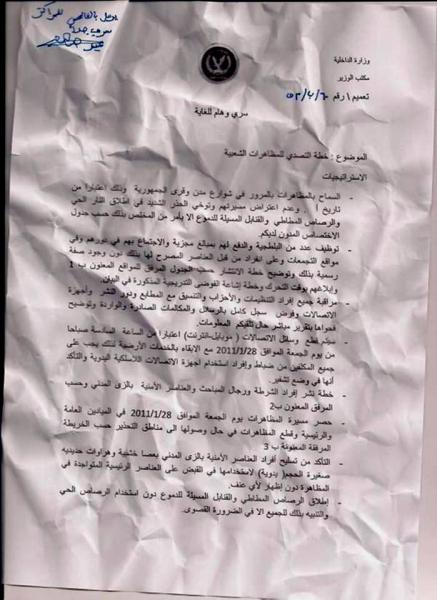 وزارة الداخلية
مكتب الوزير
تعميم ا رقم ٦٠/ب/٥٣
سري وهام للغاية
الموضوع : خطة التصدي للمظاهرات الشعبية
الاستراتيجيات
- السماح بالمظاهرات بالمرور في شوارع مدن وقرى الجمهورية وذلك اعتبارا من
تاريخ وعدم اعتراض مسيرتهم وتوخي الحذر الشديد في اطلاق النار الحي
والرصاص المطاطي والقنابل المسيلة للدموع الا بأمر من المختص بذلك حسب جدول
الاختصاص المدون لديكم.
- توظيف عدد من البلطجية والدفع لهم بمبالغ مجزية والاجتماع بهم في غورهم وفي
مواقع التجمعات وعلى انفراد من قبل العناصر المصرح لها بذلك دون وجود صفة
رسمية بذلك وتوضيح خطة الانتشار حسب الجدول المرفق للمواقع المعنون ب 1
وإبلاغهم بوقت التحرك وخطة إشاعة الفوضى التدريجية المذكورة في البيان.
- مراقبة جميع إفراد التنظيمات والأحزاب والتنسيق مع المطابع ودور النشر وأجهزة
الاتصالات وفرض سجل كامل بالرسائل والمكالمات الصادرة والواردة وتوضيح
فحواها بتقرير مباشر حال تلقيكم المعلومات.
- سيتم قطع وسائل الاتصالات ( موبايل-انترنت) اعتبارا من الساعة السادسة صباحا
من يوم الجمعة الموافق 2011/1/28 مع الابقاء بالخدمات الأرضية لذلك يجب على
جميع المكلفين من ضباط وإفراد استخدام أجهزة الاتصالات اللاسلكية اليدوية والتأكد
أنها في وضع تشفير.
- خطة نشر إفراد الشرطة ورجال المباحث والعناصر الأمنية بالزى المدني وحسب
المرفق المعنون ب2
- حصر مسيرة المظاهرات يوم الجمعة الموافق 2011/1/28 في الميادين العامة
والرئيسية وقطع المظاهرات في حال وصولها الى مناطق التحذير حسب الخريطة
المرفقة المعنونة ب 3
- التأكد من تسليح أفراد العناصر الأمنية بالزى المدني بعصا خشبية وهراوات حديديه
صغيرة الحجم( يدوية) لاستخدامها في القبض على العناصر الرئيسية المتواجدة في
المظاهرة دون إظهار لأي عنف.
- إطلاق الرصاص المطاطي والقنابل المسيلة للدموع دون استخدام الرصاص الحي
والتنبيه بذلك للجميع الا في الضرورة القصوى.